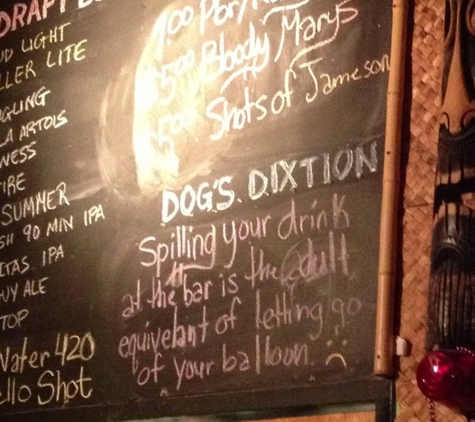 DRAFT
UD LIGHT
LLER LITE
GLING
LA ARTOIS
NESS
IRE
SUMMER
SH 90 MIN IPA
ITAS IPA
UY ALE
TOP
Water 420
llo Shot
5.00 Bloody Marys
5.00 Shots of Jameson
DOG'S DIXTION
Spilling your drink
at the bar is the adult
equivelant of letting go
of your balloon. :(